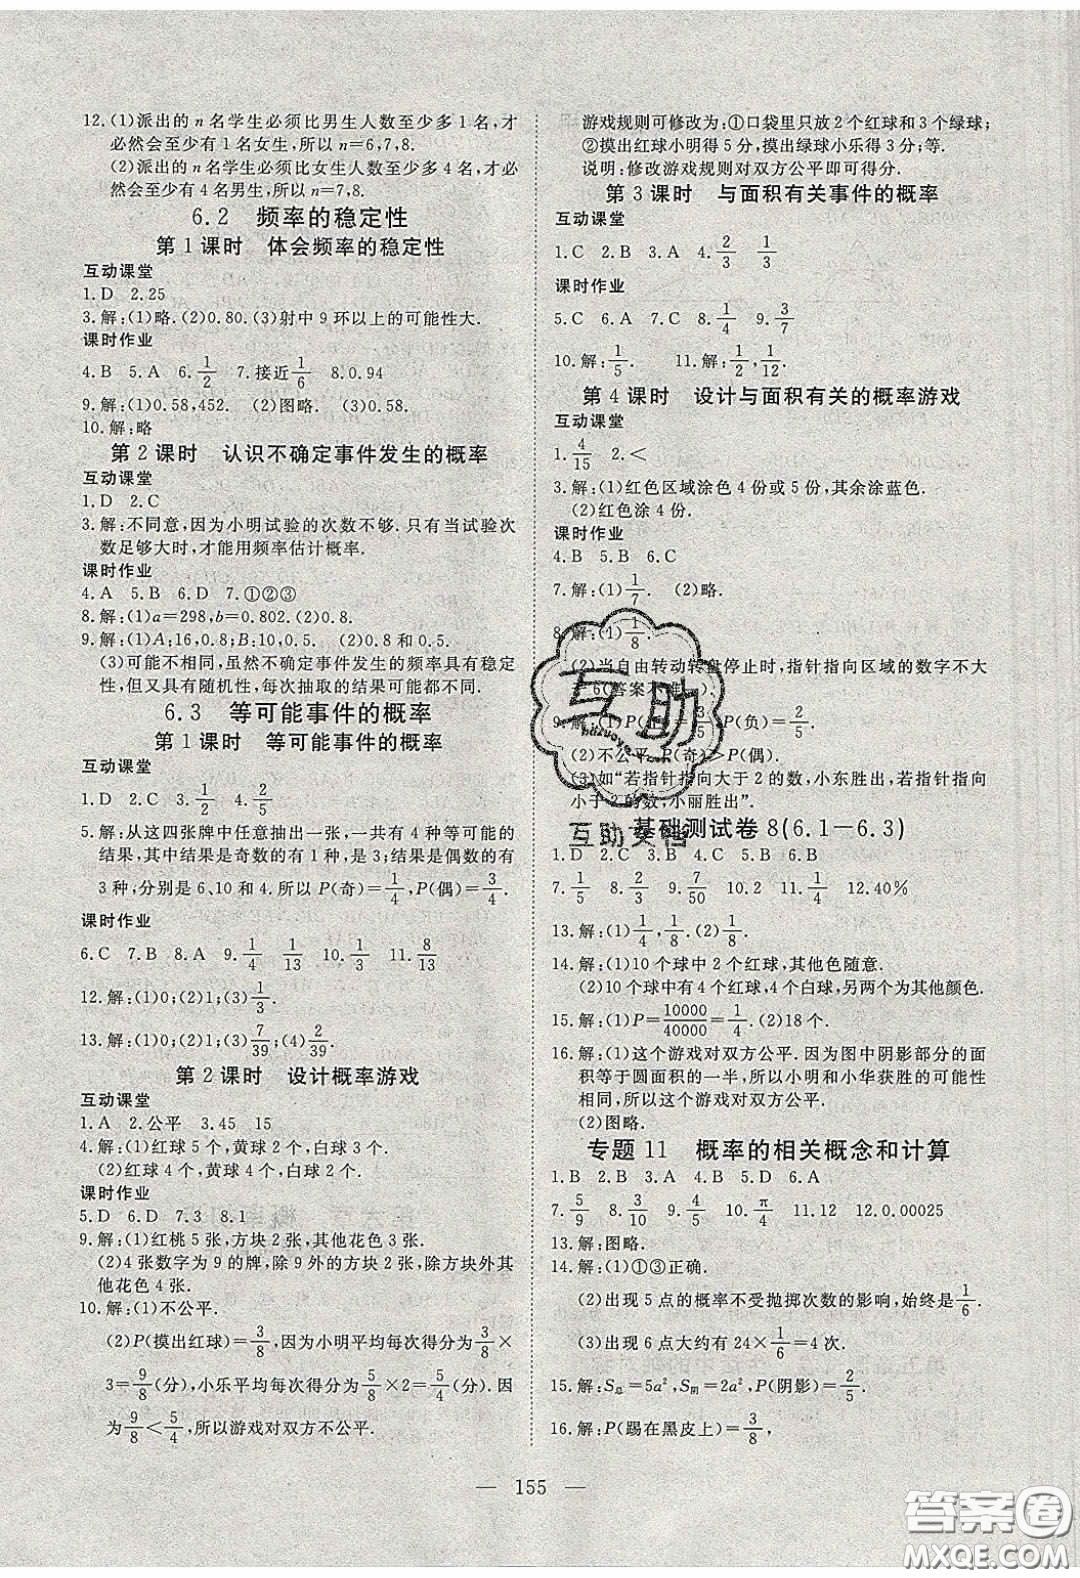 12.(1)派出的 n 名学生必须比男生人数至少多 1 名,才
必然会至少有 1 名女生,所以 n=6,7,8.
(2)派出的 n 名学生必须比女生人数至少多 4 名,才必
然会至少有 4 名男生,所以 n=7,8.
6.2 频率的稳定性
第 1 课时 体会频率的稳定性
互动课堂
1.D 2.25
3.解:(1)略.(2)0.80.(3)射中 9 环以上的可能性大.
课时作业
4.B 5.A 6.1/2 7.接近1/6 8.0.94
9.解:(1)0.58,452. (2)图略. (3)0.58.
10.解:略
第 2 课时 认识不确定事件发生的概率
互动课堂
1.D 2.C
3.解:不同意,因为小明试验的次数不够.只有当试验次
数足够大时,才能用频率估计概率.
课时作业
4.A 5.B 6.D 7.①②③
8.解:(1)a=298,b=0.802.(2)0.8.
9.解:(1)A;16,0.8;B;10,0.5. (2)0.8 和 0.5.
(3)可能不相同,虽然不确定事件发生的频率具有稳定
性,但又具有随机性,每次抽取的结果可能都不同.
6.3 等可能事件的概率
第 1 课时 等可能事件的概率
互动课堂
1.D 2.C 3.A 4.1/2
5.解:从这四张牌中任意抽出一张,一共有 4 种等可能的
结果,其中结果是奇数的有 1 种,是 3;结果是偶数的有
3 种,分别是 6、10 和 4.所以 P(奇)=1/4,P(偶)=3/4.
课时作业
6.C 7.B 8.A 9.1/4 10.1/13 11.8/13
12.解:(1)0;(2)1;(3)1/3.
13.解:(1)0;(2)1;(3)7/39;(4)2/39.
第 2 课时 设计概率游戏
互动课堂
1.A 2.公平 3.45 15
4.解:(1)红球 5 个,黄球 2 个,白球 3 个.
(2)红球 4 个,黄球 2 个,白球 4 个.
课时作业
5.D 6.D 7.3 8.1
9.解:(1)红桃 5 张,方块 2 张,其他花色 3 张.
(2)4 张数字为 9 的牌,除 9 外的方块 2 张,除方块外其
他花色 4 张.
10.解:(1)不公平.
(2)P(摸出红球)=3/8,因为小明平均每次得分为3/8×
3=9/8(分),小乐平均每次得分为5/8×2=5/4(分).因
为9/8<5/4,所以游戏对双方不公平.
游戏规则可修改为:①口袋里只放 2 个红球和 3 个绿球;
②摸出红球小明得 5 分,摸出绿球小乐得 3 分;等.
说明:修改游戏规则对双方公平即可得分.
第 3 课时 与面积有关事件的概率
互动课堂
1.C 2.B 3.A 4.2/3 1/3
课时作业
5.C 6.A 7.C 8.1/4 9.3/7
10.解:1/5. 11.解:1/2,1/12.
第 4 课时 设计与面积有关的概率游戏
互动课堂
1.4/15 2.<
3.解:(1)红色区域涂色 4 份或 5 份,其余涂蓝色.
(2)红色涂 4 份.
课时作业
4.B 5.B 6.C
7.解:(1)1/7. (2)略.
8.解:(1)1/8.
(2)当自由转动转盘停止时,指针指向区域的数字不大
6(答案不唯一).
9.解:(1)P(正)=3/5,P(负)=2/5.
(2)不公平.P(奇)>P(偶).
(3)如“若指针指向大于 2 的数,小东胜出,若指针指向
小于 2 的数,小丽胜出”.
基础测试卷 8(6.1—6.3)
1.D 2.B 3.C 4.C 5.D 6.A
7.1/5 8.3/20 9.7/50 10.2 11.1/4 12.40%
13.解:(1)1/4,1/8.(2)1/8.
14.解:(1)10 个球中 2 个红球,其他色随意.
(2)10 个球中有 4 个红球,4 个白球,另两个为其他颜色.
15.解:(1)P=10000/40000=1/4.(2)18 个.
16.解:(1)这个游戏对双方公平.因为图中阴影部分的
面积等于圆面积的一半,所以小明和小华获胜的可能性
相同,故这个游戏对双方公平.
(2)图略.
专题 11 概率的相关概念和计算
1.B 2.B 3.B 4.D 5.D 6.A
7.5/9 8.3/10 9.4/5 10.π/4 11.12 12.0.00025
13.解:图略.
14.解:(1)①③正确.
(2)出现 5 点的概率不受抛掷次数的影响,始终是1/6.
(3)出现 6 点大约有 24×1/6=4 次.
15.解:S总=5a²,S阴=2a²,P(阴影)=2/5.
16.解:P(踢在黑皮上)=3/8,
互助
huzuoye
互助文档
— 155 —
答案圈
MXQE.COM